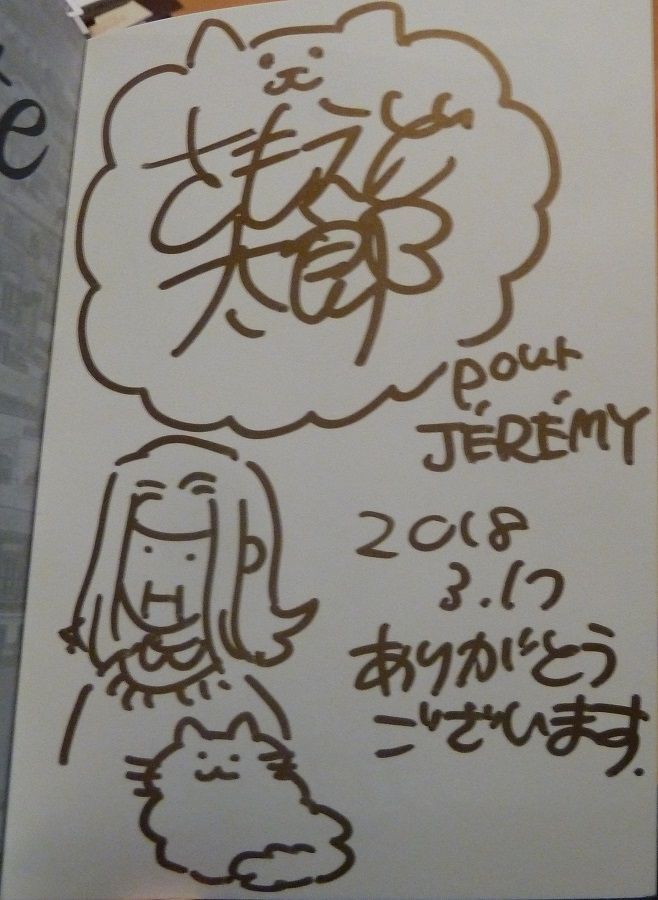 さもえど
太郎
pour
JÉRÉMY
2018
3.17
ありがとう
ございます.